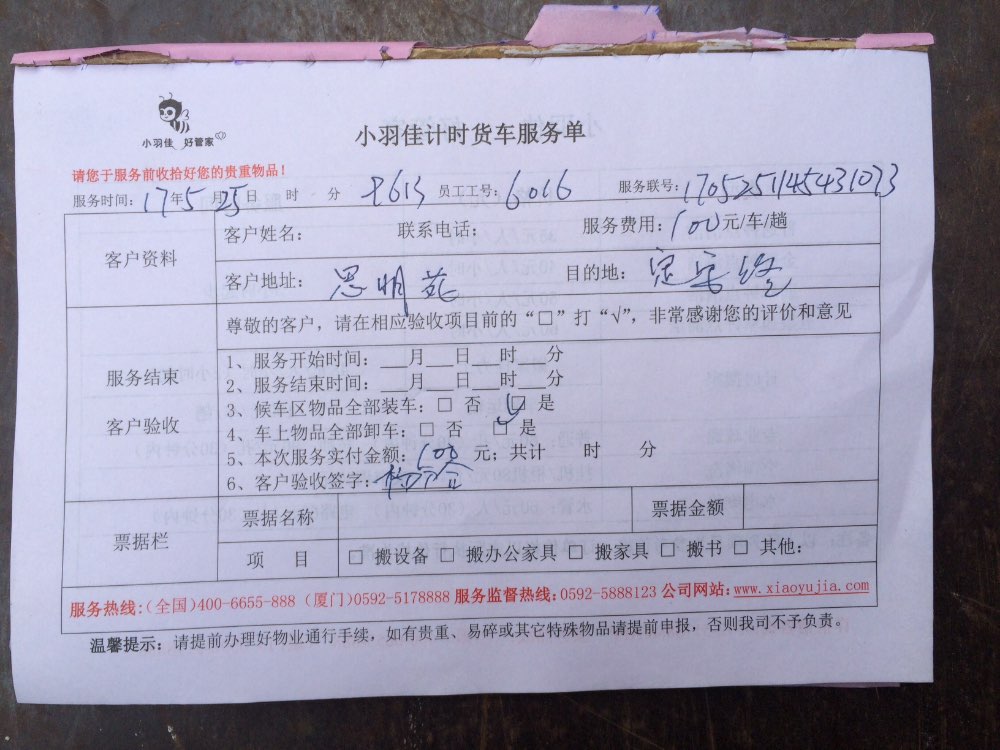 小羽佳 好管家
小羽佳计时货车服务单
请您于服务前收拾好您的贵重物品!
服务时间: 17年5月25日 时 分 员工工号: 6016 服务联号: 1705251145431073
客户资料
客户姓名: 联系电话: 服务费用: 100元/车/趟
客户地址: 思明苑 目的地:
服务结束
客户验收
尊敬的客户，请在相应验收项目前的“□”打“√”，非常感谢您的评价和意见
1、服务开始时间: __月__日__时__分
2、服务结束时间: __月__日__时__分
3、候车区物品全部装车: □ 否 □ 是
4、车上物品全部卸车: □ 否 □ 是
5、本次服务实付金额: 100 元; 共计 时 分
6、客户验收签字:
票据栏
票据名称 票据金额
项 目 □ 搬设备 □ 搬办公家具 □ 搬家具 □ 搬书 □ 其他:
服务热线:(全国)400-6655-888 (厦门)0592-5178888 服务监督热线:0592-5888123 公司网站:www.xiaoyujia.com
温馨提示: 请提前办理好物业通行手续，如有贵重、易碎或其它特殊物品请提前申报，否则我司不予负责。